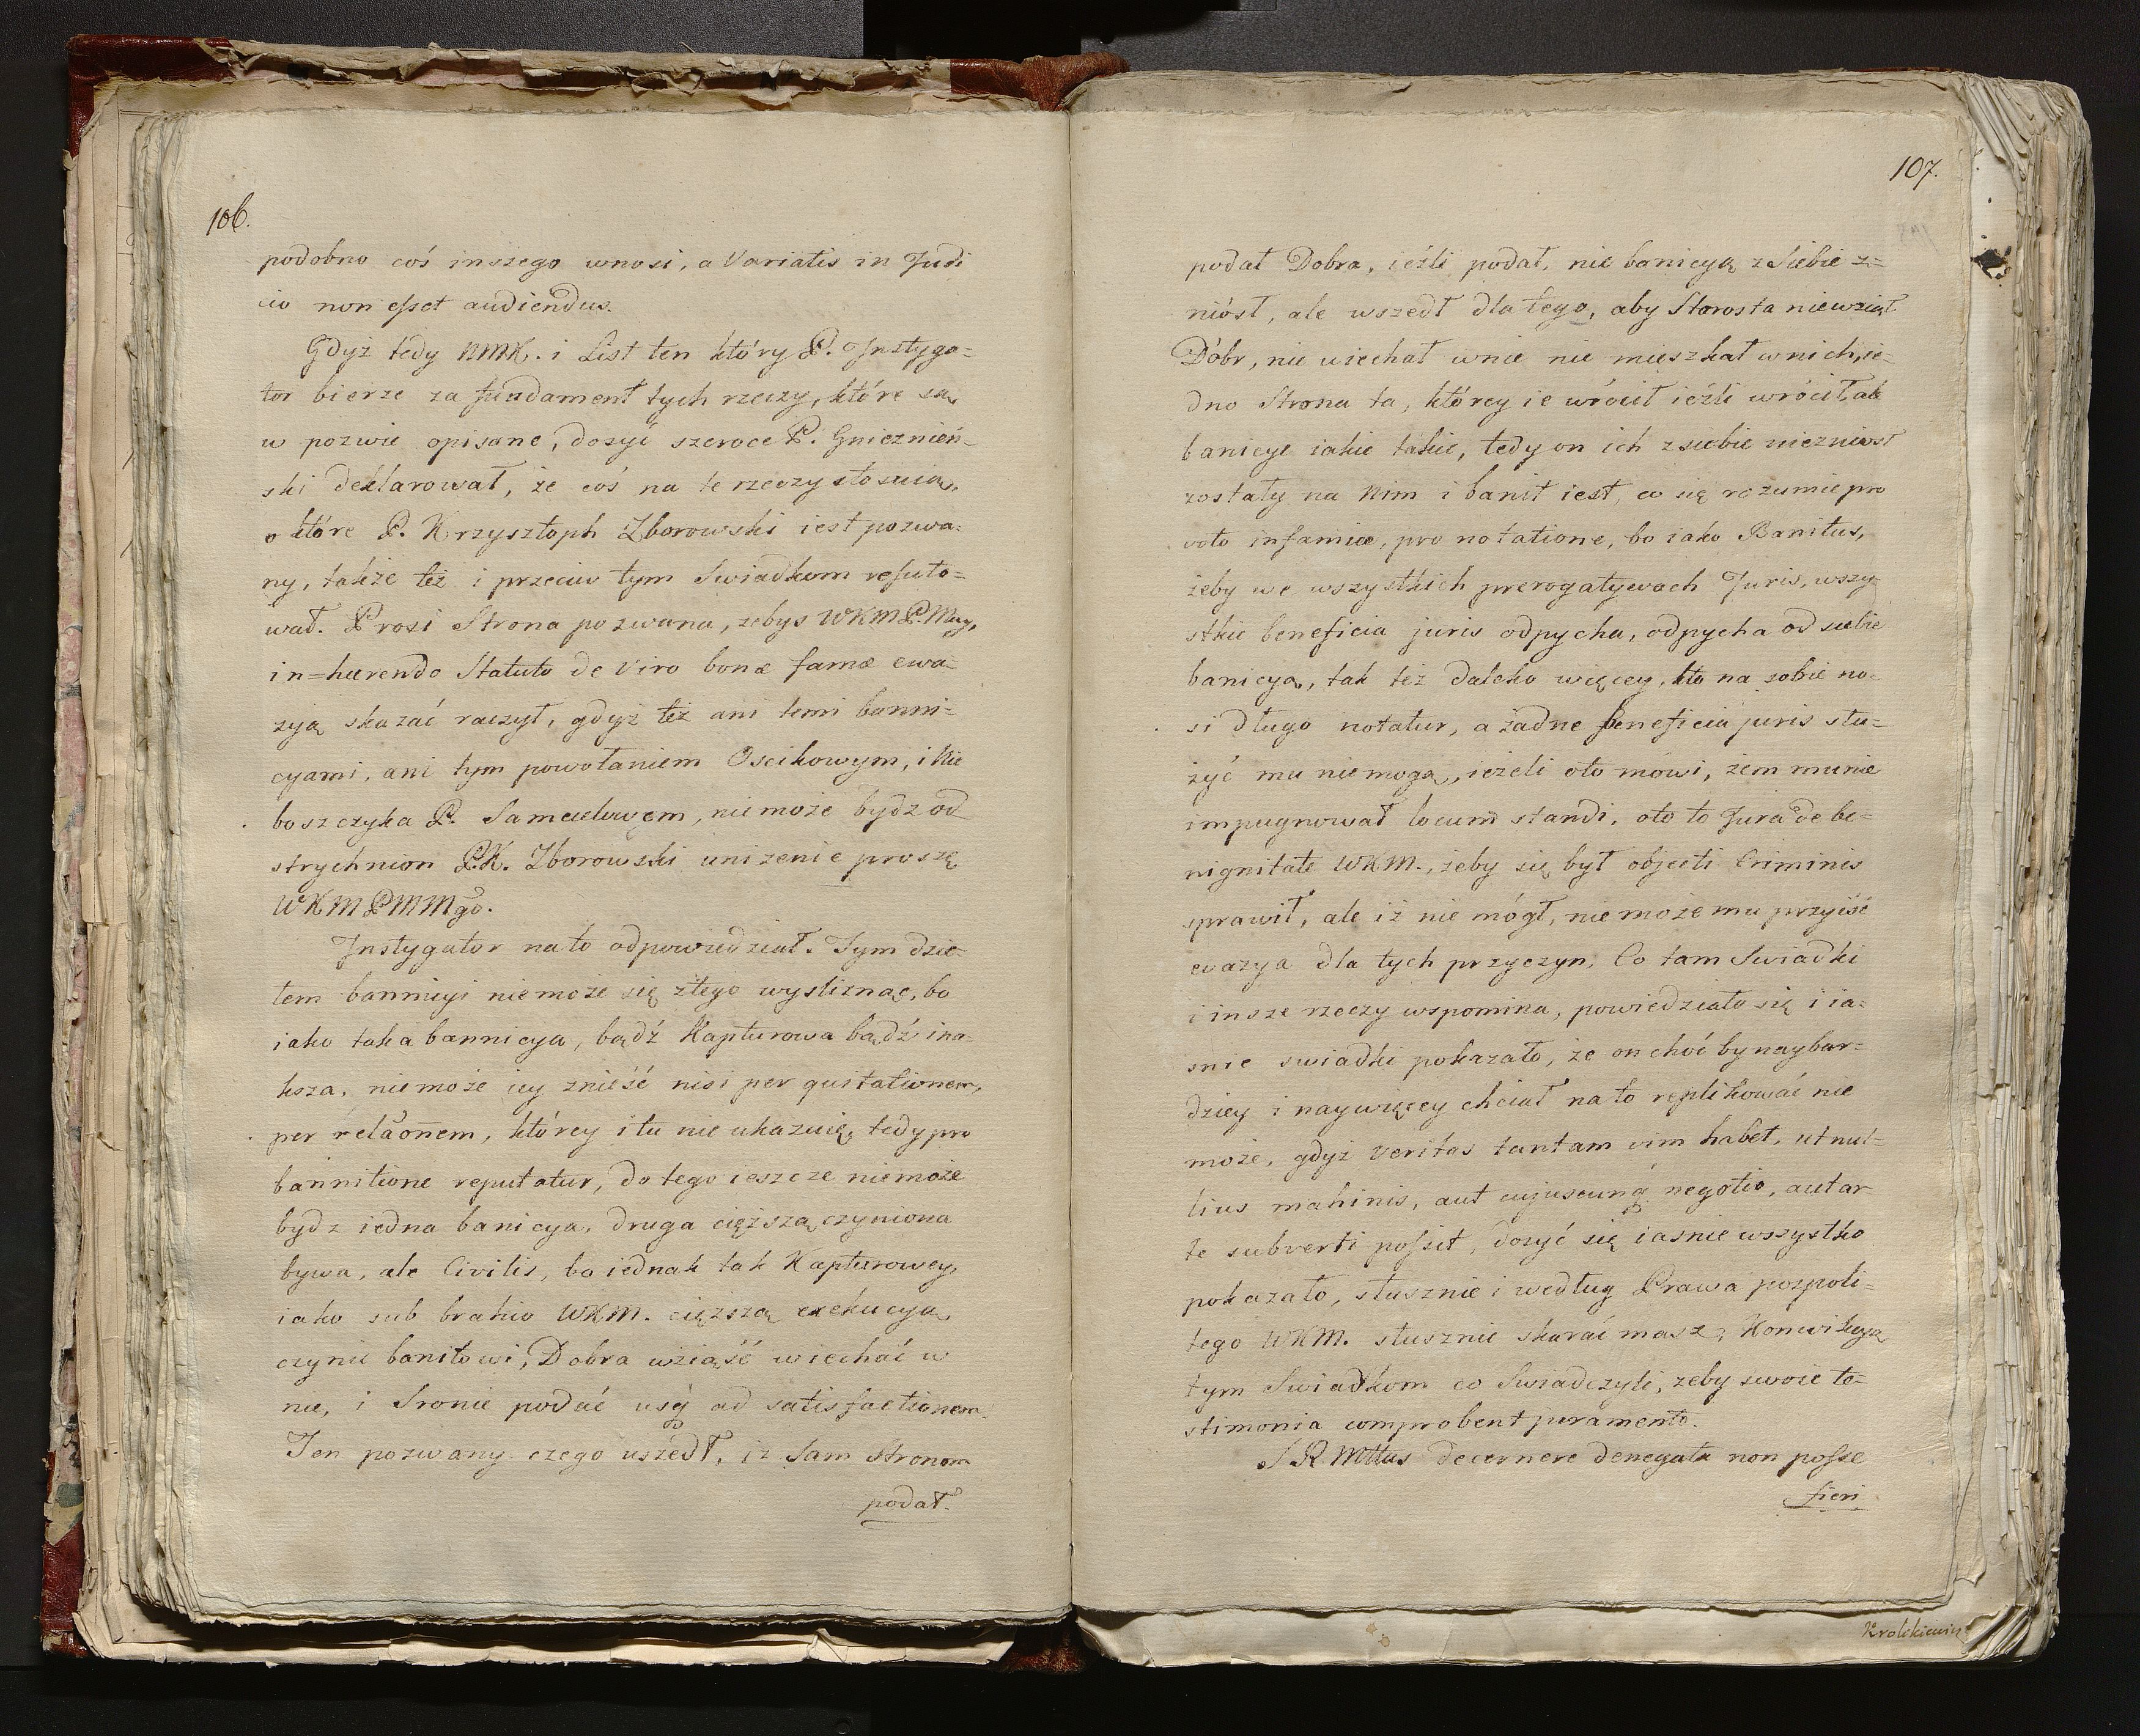 106.
podobno coś inszego wnosi, a Variatis in Judi
cio non esset audiendus.
Gdyż tedy NMK. i List ten który P. Instyga=
tor bierze za fundament tych rzeczy, które są,
w pozwie opisane, dosyć szeroce P. Gnieznień=
ski deklarował, że coś na te rzeczy stosuią,
o które P. Krzysztoph Zborowski iest pozwa=
ny, także też i przeciw tym Swiadkom refuto=
wał. Prosi Strona pozwana, żebys WKM P. Mug,
in=hærendo Statuto de Viro bonæ famæ ewa=
zyą skazać raczył, gdyż też ani temi banni=
cyami, ani tym powołaniem Oscikowym, i Nie
boszczyka P. Samuelowęm, nie może bydz od
strychnion P.K. Zborowski unizenie proszę
WKM PMMgo.
Instygator na to odpowiedział. Tym dzie=
łem bannicyi nie może się złego wysliznąc, bo
iako taka bannicya, bądź Kapturowa bądź ina=
ksza, nie może iey znieść nisi per quitationem,
per relaonem, którey i tu nie ukazuie, tedy pro
bannitione reputatur, do tego ieszcze niemoże
bydz iedna banicya, druga cięższą czyniona
bywa, ale Civilis, bo iednak tak Kapturowey,
iako sub brahio WKM. cięzszą exekucyą
czynić banitowi, Dobra wziąść wiechać w
nie, i Sronie podać usq ad satisfactionem.
Ten pozwany czego uszedł, iz sam stronom
podał.
107.
podał Dobra, ieźli podał, nie banicyą z Siebie z=
niósł, ale wszedł dla tego, aby Starosta niewziął
Dóbr, nie wiechał w nie nie mieszkał w nich, ie=
dno Strona ta, którey ie wrócił ieźli wrócił, ale
banicye iakie takie, tedy on ich z siebie niezniosł
zostały na Nim i banit iest, co się rozumie pro
voto infamiæ, pro notatione, bo iako Banitus,
żeby we wszystkich prerogatywach Juris, wszy=
stkie beneficia juris odpycha, odpycha od siebie
banicya, tak też daleko więcey, kto na sobie no=
si długo notatur, a żadne beneficia juris słu=
żyć mu niemogą, ieżeli oto mówi, żem mu nie
impugnował locum standi, oto to Jura de be=
nignitate WKM., żeby się był objecti Criminis
sprawił, ale iż nie mógł, nie może mu przyiść
ewazya dla tych przyczyn, Co tam Swiadki
i insze rzeczy wspomina, powiedziało się i ia=
snie swiadki pokazało, że on choć by naybar=
dziey i naywięcey chciał na to replikować nie
może, gdyż Veritas tantam vim habet, ut nul=
lius mahinis, aut cujuscunq negotio, aut ar
te subverti possit, dosyć się iasnie wszystko
pokazało, słusznie i według Prawa pospoli=
tego WKM. słusznie skarać masz, Konwikcyą
tym Swiadkom co Swiadczyli, żeby swoie te=
stimonia comprobent juramento.
S R. Mttas decernere denegata non posse
fieri